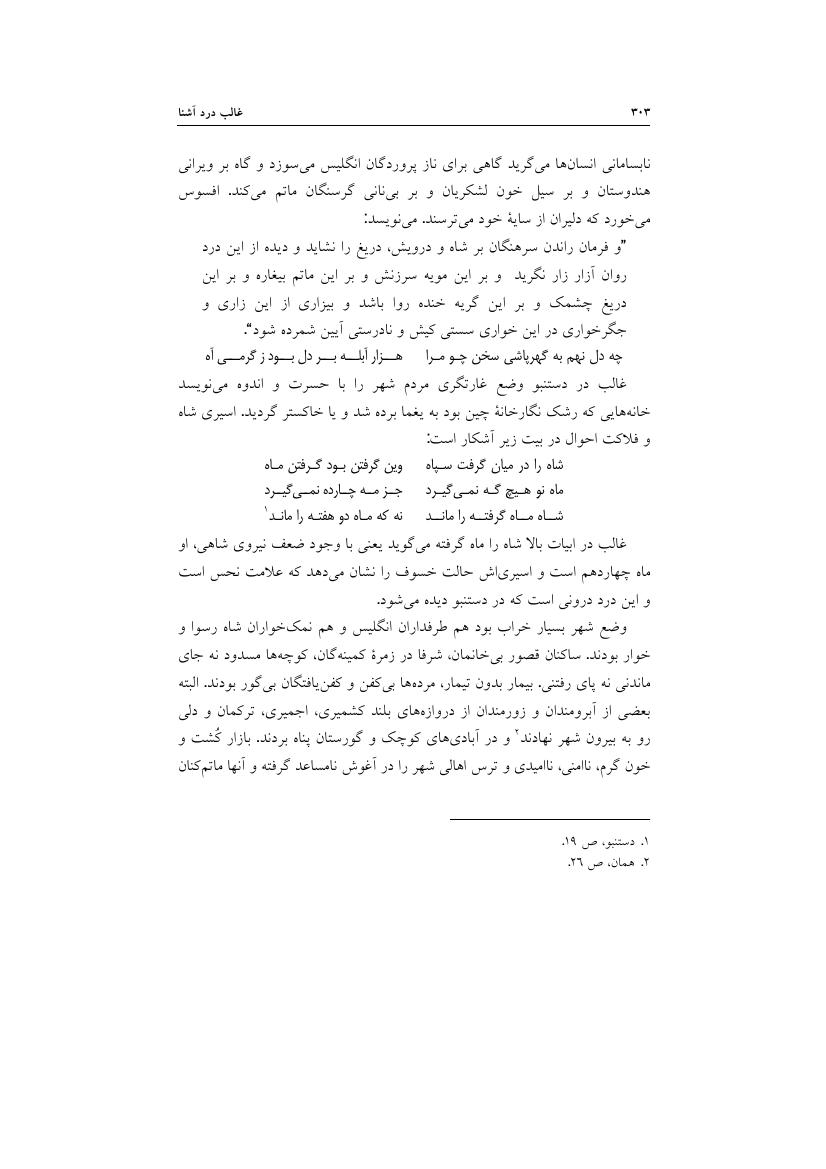 ۳۰۳ غالب درد آشنا
نابسامانی انسان‌ها می‌گرید گاهی برای ناز پروردگان انگلیس می‌سوزد و گاه بر ویرانی
هندوستان و بر سیل خون لشکریان و بر بی‌نانی گرسنگان ماتم می‌کند. افسوس
می‌خورد که دلیران از سایهٔ خود می‌ترسند. می‌نویسد:
”و فرمان راندن سرهنگان بر شاه و درویش، دریغ را نشاید و دیده از این درد
روان آزار زار نگرید و بر این مویه سرزنش و بر این ماتم بیغاره و بر این
دریغ چشمک و بر این گریه خنده روا باشد و بیزاری از این زاری و
جگرخواری در این خواری سستی کیش و نادرستی آیین شمرده شود“.
چه دل نهم به گهرپاشی سخن چو مرا هزار آبله بر دل بود ز گرمی آه
غالب در دستنبو وضع غارتگری مردم شهر را با حسرت و اندوه می‌نویسد
خانه‌هایی که رشک نگارخانهٔ چین بود به یغما برده شد و یا خاکستر گردید. اسیری شاه
و فلاکت احوال در بیت زیر آشکار است:
شاه را در میان گرفت سپاه وین گرفتن بود گرفتن ماه
ماه نو هیچ گه نمی‌گیرد جز مه چارده نمی‌گیرد
شاه ماه گرفته را ماند نه که ماه دو هفته را ماند۱
غالب در ابیات بالا شاه را ماه گرفته می‌گوید یعنی با وجود ضعف نیروی شاهی، او
ماه چهاردهم است و اسیری‌اش حالت خسوف را نشان می‌دهد که علامت نحس است
و این درد درونی است که در دستنبو دیده می‌شود.
وضع شهر بسیار خراب بود هم طرفداران انگلیس و هم نمک‌خواران شاه رسوا و
خوار بودند. ساکنان قصور بی‌خانمان، شرفا در زمرهٔ کمینه‌گان، کوچه‌ها مسدود نه جای
ماندنی نه پای رفتنی. بیمار بدون تیمار، مرده‌ها بی‌کفن و کفن‌یافتگان بی‌گور بودند. البته
بعضی از آبرومندان و زورمندان از دروازه‌های بلند کشمیری، اجمیری، ترکمان و دلی
رو به بیرون شهر نهادند۲ و در آبادی‌های کوچک و گورستان پناه بردند. بازار کُشت و
خون گرم، ناامنی، ناامیدی و ترس اهالی شهر را در آغوش نامساعد گرفته و آنها ماتم‌کنان
۱. دستنبو، ص ۱۹.
۲. همان، ص ۲٦.